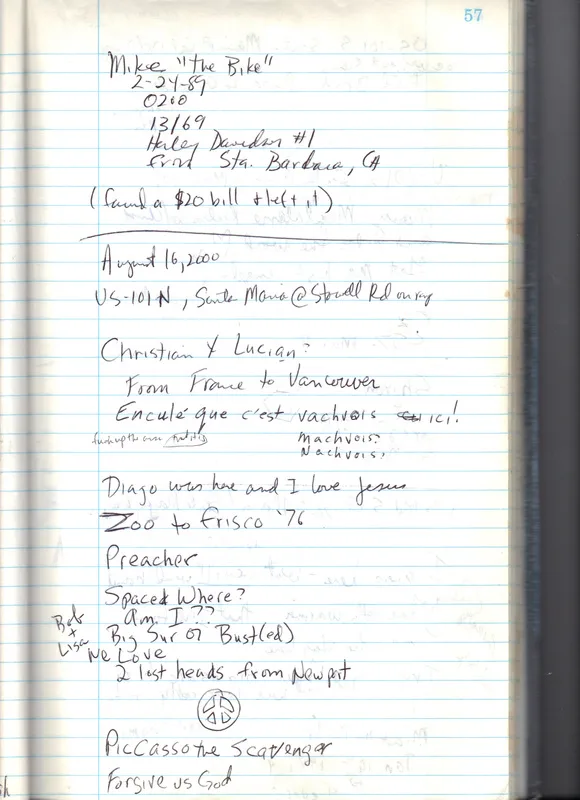 57
Mike "the Bike"
2-24-89
0210
13/69
Harley Davidson #1
from Sta. Barbara, CA
(found a $20 bill + left it)
August 16, 2000
US-101 N, Santa Maria @ Stowell Rd onrmp
Christian & Lucian?
From France to Vancouver
Enculé que c'est vachvois ici!
Machvois?
Nachvois?
Diago was here and I love Jesus
Zoo to Frisco '76
Preacher
Spaced Where?
Am I??
Big Sur or Bust(ed)
Bob
+
Lisa
We Love
2 lost heads from Newport
PicCasso the Scavenger
Forgive us God